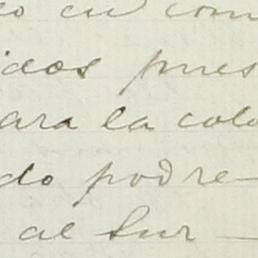 o en com
idos pues
ara la colo
do podre-
al Sur -